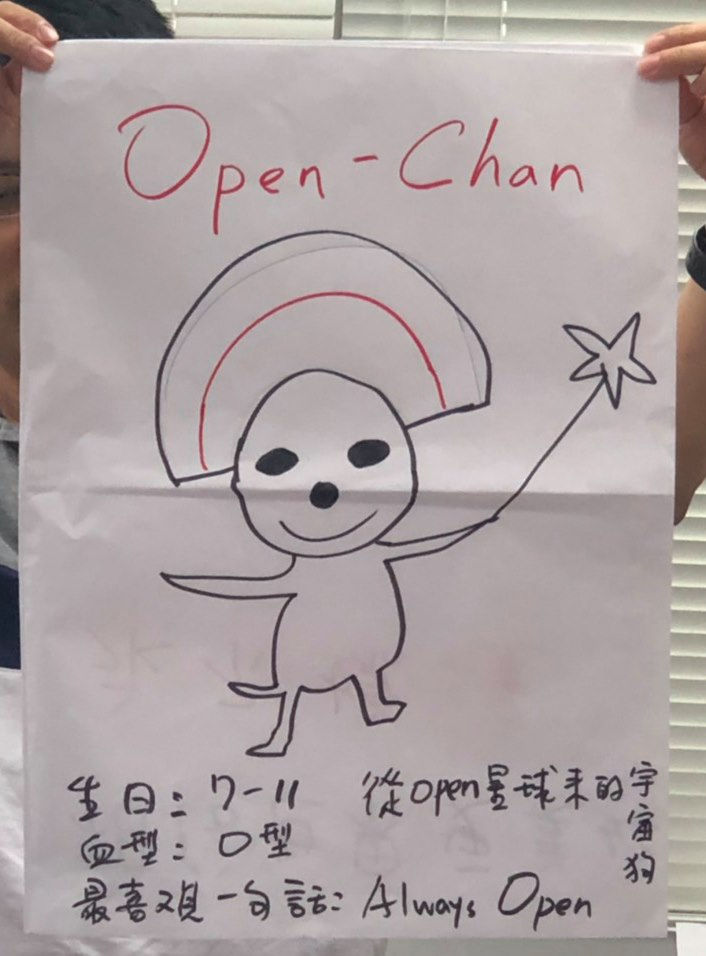 Open-Chan
生日: 7-11 從open星球来的宇宙狗
血型: O型
最喜观一句話: Always Open